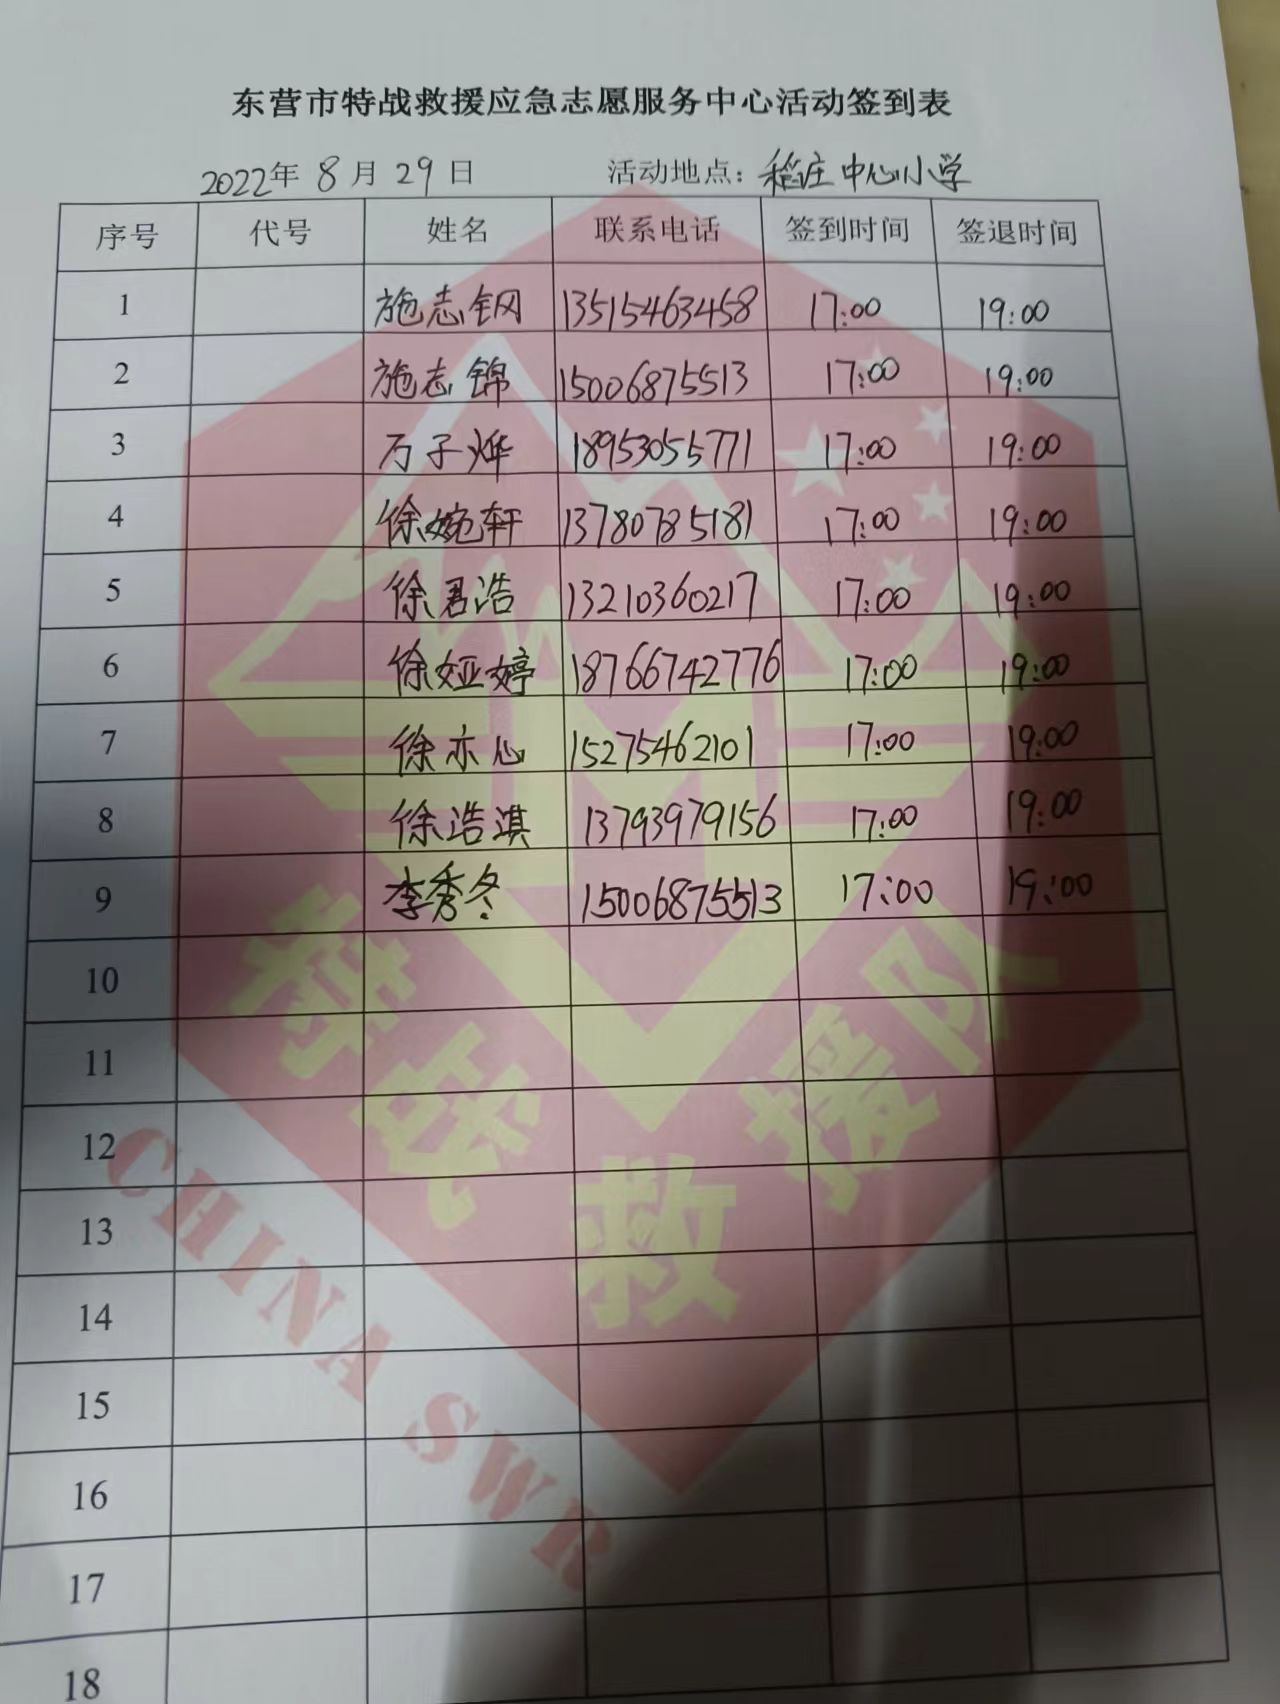 东营市特战救援应急志愿服务中心活动签到表
2022年 8月 29日 活动地点：稻庄中心小学
序号 代号 姓名 联系电话 签到时间 签退时间
1 施志钢 13515463458 17:00 19:00
2 施志锦 15006875513 17:00 19:00
3 万子烨 18953055771 17:00 19:00
4 徐婉轩 13780785181 17:00 19:00
5 徐君浩 13210360217 17:00 19:00
6 徐娅婷 18766742776 17:00 19:00
7 徐亦心 15275462101 17:00 19:00
8 徐浩淇 13793979156 17:00 19:00
9 李秀冬 15006875513 17:00 19:00
10
11
12
13
14
15
16
17
18
特战救援队
CHINA SWR